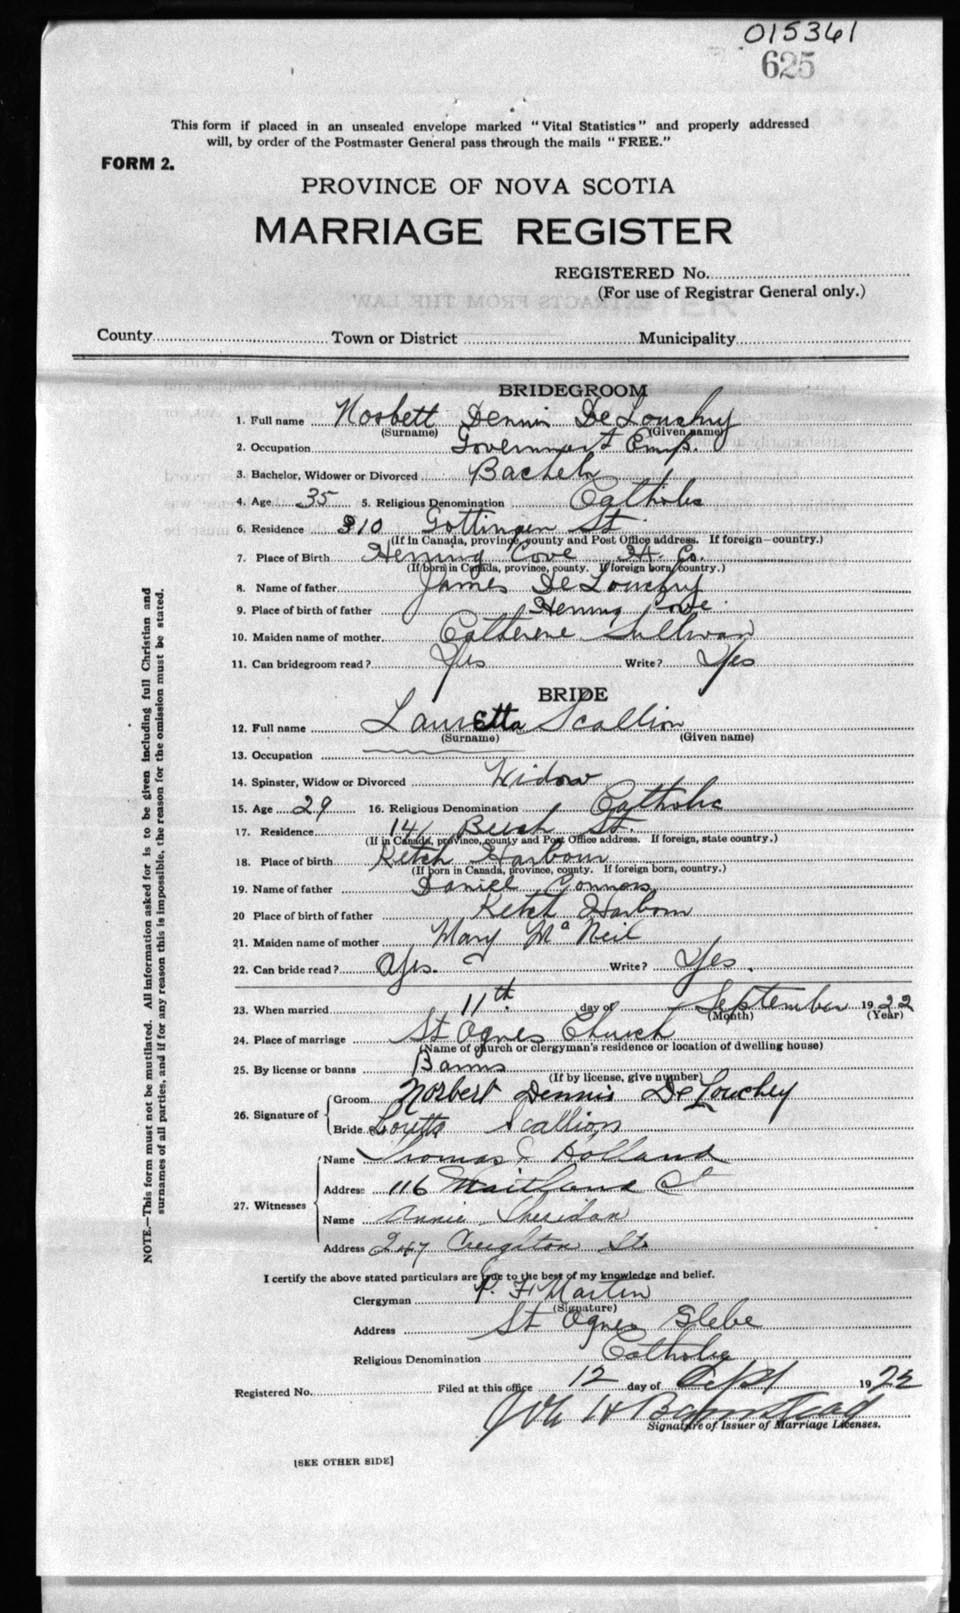 015361
625
This form if placed in an unsealed envelope marked "Vital Statistics" and properly addressed
will, by order of the Postmaster General pass through the mails "FREE."
FORM 2.
PROVINCE OF NOVA SCOTIA
MARRIAGE REGISTER
REGISTERED No.
(For use of Registrar General only.)
County Town or District Municipality
BRIDEGROOM
1. Full name Norbett Dennis DeLouchry
(Surname) (Given name)
2. Occupation Government Emp.
3. Bachelor, Widower or Divorced Bachelor
4. Age 35 5. Religious Denomination Catholic
6. Residence 310 Gottingen St
(If in Canada, province, county and Post Office address. If foreign—country.)
7. Place of Birth Herring Cove Hx. Co.
(If born in Canada, province, county. If foreign born, country.)
8. Name of father James DeLouchry
9. Place of birth of father Herring Cove
10. Maiden name of mother Catherene Sullivan
11. Can bridegroom read? Yes Write? Yes
BRIDE
12. Full name Lauretta Scallion
(Surname) (Given name)
13. Occupation
14. Spinster, Widow or Divorced Widow
15. Age 29 16. Religious Denomination Catholic
17. Residence 14 St.
(If in Canada, province, county and Post Office address. If foreign, state country.)
18. Place of birth Ketch Harbour
(If born in Canada, province, county. If foreign born, country.)
19. Name of father Daniel Connors
20 Place of birth of father Ketch Harbour
21. Maiden name of mother Mary McNeil
22. Can bride read? Yes. Write? Yes.
23. When married 11th day of September 1922
(Month) (Year)
24. Place of marriage St Agnes Church
(Name of church or clergyman's residence or location of dwelling house)
25. By license or banns Banns
(If by license, give number)
26. Signature of
Groom Norbert Dennis DeLouchey
Bride Loretta Scallion
27. Witnesses
Name Thomas J Holland
Address 116 Maitland St
Name Annie Sheridan
Address 247 Creighton St.
I certify the above stated particulars are true to the best of my knowledge and belief.
Clergyman P. F. Martin
(Signature)
Address St Agnes Glebe
Religious Denomination Catholic
Registered No. Filed at this office 12 day of Sept 1922
Signature of Issuer of Marriage Licenses.
[SEE OTHER SIDE]
NOTE.—This form must not be mutilated. All information asked for is to be given including full Christian and
surnames of all parties, and if for any reason this is impossible, the reason for the omission must be stated.